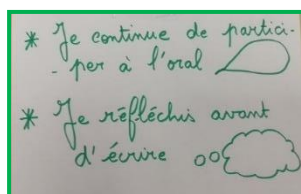 * Je continue de partici-
- per à l'oral
* Je réfléchis avant
d'écrire